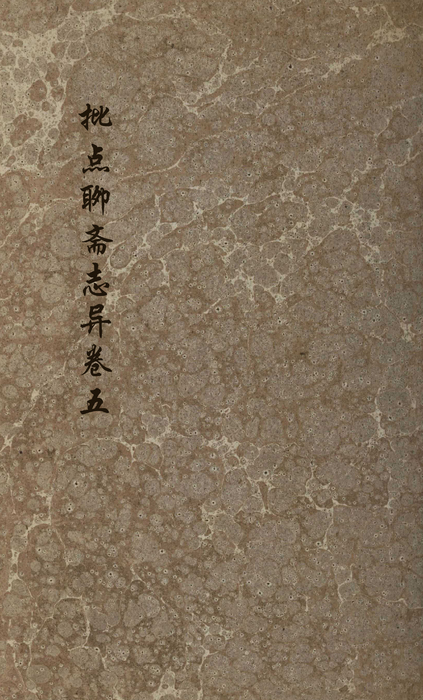 批点聊斋志异卷五